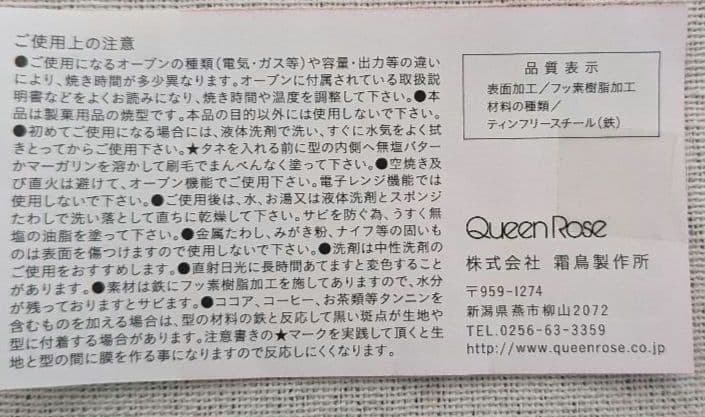 ご使用上の注意
●ご使用になるオーブンの種類(電気・ガス等)や容量・出力等の違い
により、焼き時間が多少異なります。オーブンに付属されている取扱説
明書などをよくお読みになり、焼き時間や温度を調整して下さい。●本
品は製菓用品の焼型です。本品の目的以外には使用しないで下さい。
●初めてご使用になる場合には、液体洗剤で洗い、すぐに水気をよく拭
きとってからご使用下さい。★タネを入れる前に型の内側へ無塩バター
かマーガリンを溶かして刷毛でまんべんなく塗って下さい。●空焼き及
び直火は避けて、オーブン機能でご使用下さい。電子レンジ機能では
使用しないで下さい。●ご使用後は、水、お湯又は液体洗剤とスポンジ
たわしで洗い落として直ちに乾燥して下さい。サビを防ぐ為、うすく無
塩の油脂を塗って下さい。●金属たわし、みがき粉、ナイフ等の固いも
のは表面を傷つけますので使用しないで下さい。●洗剤は中性洗剤の
ご使用をおすすめします。●直射日光に長時間あてますと変色すること
があります。●素材は鉄にフッ素樹脂加工を施してありますので、水分
が残っておりますとサビます。●ココア、コーヒー、お茶類等タンニンを
含むものを加える場合は、型の材料の鉄と反応して黒い斑点が生地や
型に付着する場合があります。注意書きの★マークを実践して頂くと生
地と型の間に膜を作る事になりますので反応しにくくなります。
品質表示
表面加工/フッ素樹脂加工
材料の種類/
ティンフリースチール(鉄)
Queen Rose
株式会社 霜鳥製作所
〒959-1274
新潟県燕市柳山2072
TEL.0256-63-3359
http://www.queenrose.co.jp